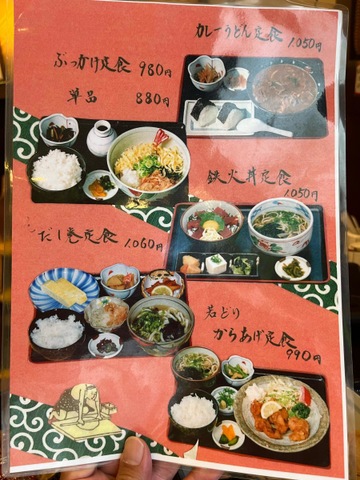 カレーうどん定食 1,050円
ぶっかけ定食 980円
単品 880円
鉄火丼定食 1,050円
だし巻定食 1,060円
若どり
からあげ定食 990円